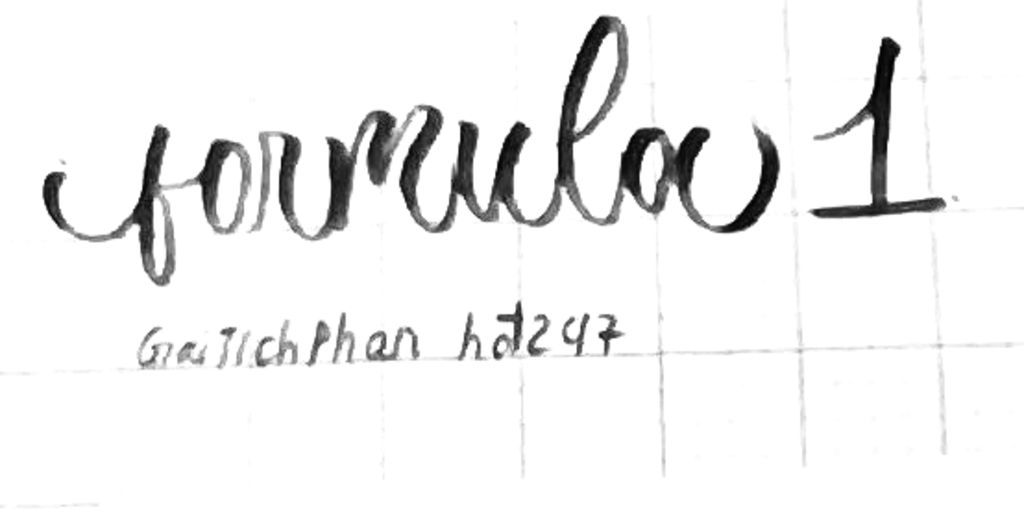 formula 1
GiaiTichPhan hot247